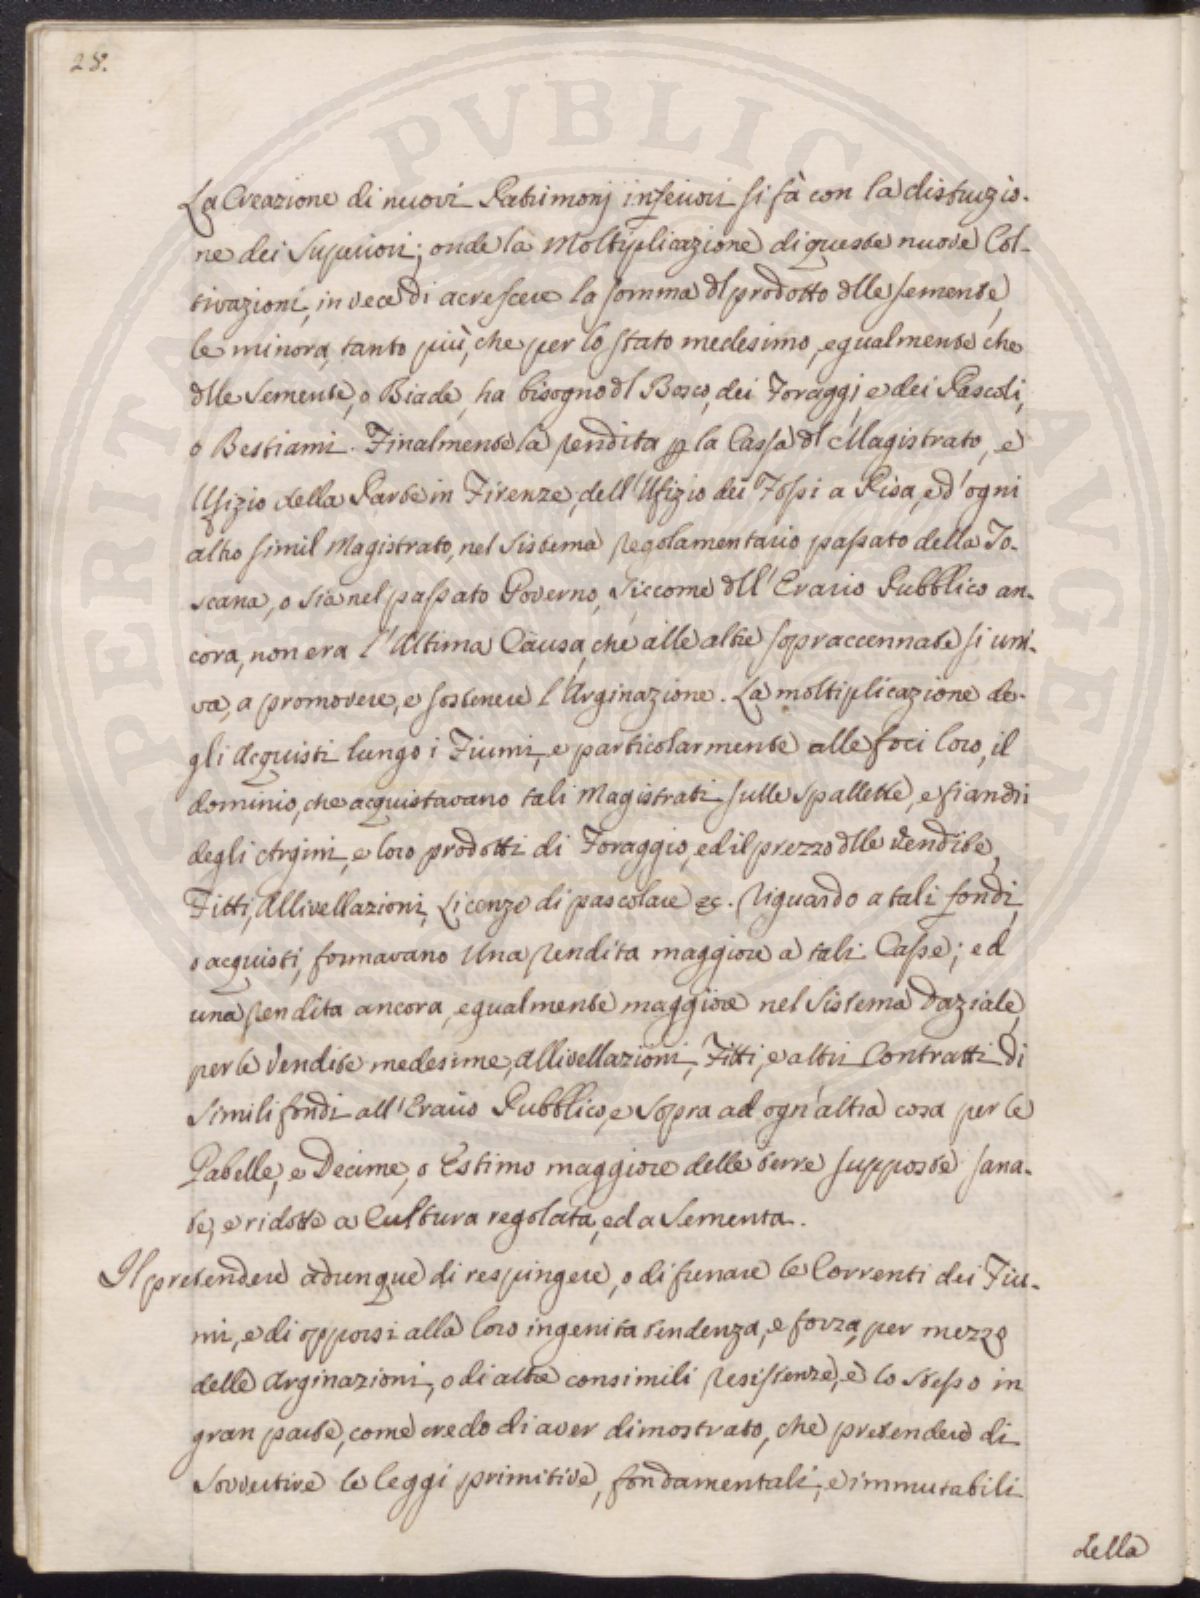 28.
La Creazione di nuovi Patrimonj inferiori si fà con la distruzio-
ne dei Superiori; onde la Moltiplicazione di queste nuove Col-
tivazioni, in vece di acrescere la somma dl prodotto dlle semente,
le minora, tanto più, che per lo stato medesimo, egualmente che
dlle Semente, o Biade, ha bisogno dl Bosco, dei Foraggj, e dei Pascoli,
o Bestiami. Finalmente la rendita p la Cassa dl Magistrato, e
Ufizio della Parte in Firenze, dell'Ufizio dei Fossi a Pisa, ed'ogni
altro simil Magistrato, nel Sistema regolamentario passato della To-
scana, o sia nel passato Governo, siccome dll'Erario Pubblico an-
cora, non era l'Ultima Causa, che alle altre sopraccennate si uni-
va, a promovere, e sostenere l'Arginazione. La moltiplicazione de-
gli Acquisti lungo i Fiumi, e particolarmente alle foci loro, il
dominio, che acquistavano tali Magistrati sulle Spallette, e fianchi
degli Argini, e loro prodotti di Foraggio, ed il prezzo dlle vendite,
Fitti, Allivellazioni, Licenze di pascolare &c. Riguardo a tali fondi,
o acquisti, formavano Una rendita maggiore a tali Casse; ed
una rendita ancora, egualmente maggiore nel Sistema Daziale,
per le Vendite medesime, Allivellazioni, Fitti, e altri Contratti di
Simili fondi all'Erario Pubblico, e Sopra ad ogn'altra cosa per le
Gabelle, e Decime, o Estimo maggiore delle terre supposte sana-
te, e ridotte a Cultura regolata, ed a Sementa.
Il pretendere adunque di respingere, o di frenare le Correnti dei Fiu-
mi, e di opporsi alla loro ingenita tendenza, e forza, per mezzo
delle Arginazioni, o di altre consimili resistenze, è lo stesso in
gran parte, come credo di aver dimostrato, che pretendere di
Sovvertire le leggi primitive, fondamentali, e immutabili
della
PVBLICAE AVGENDAE